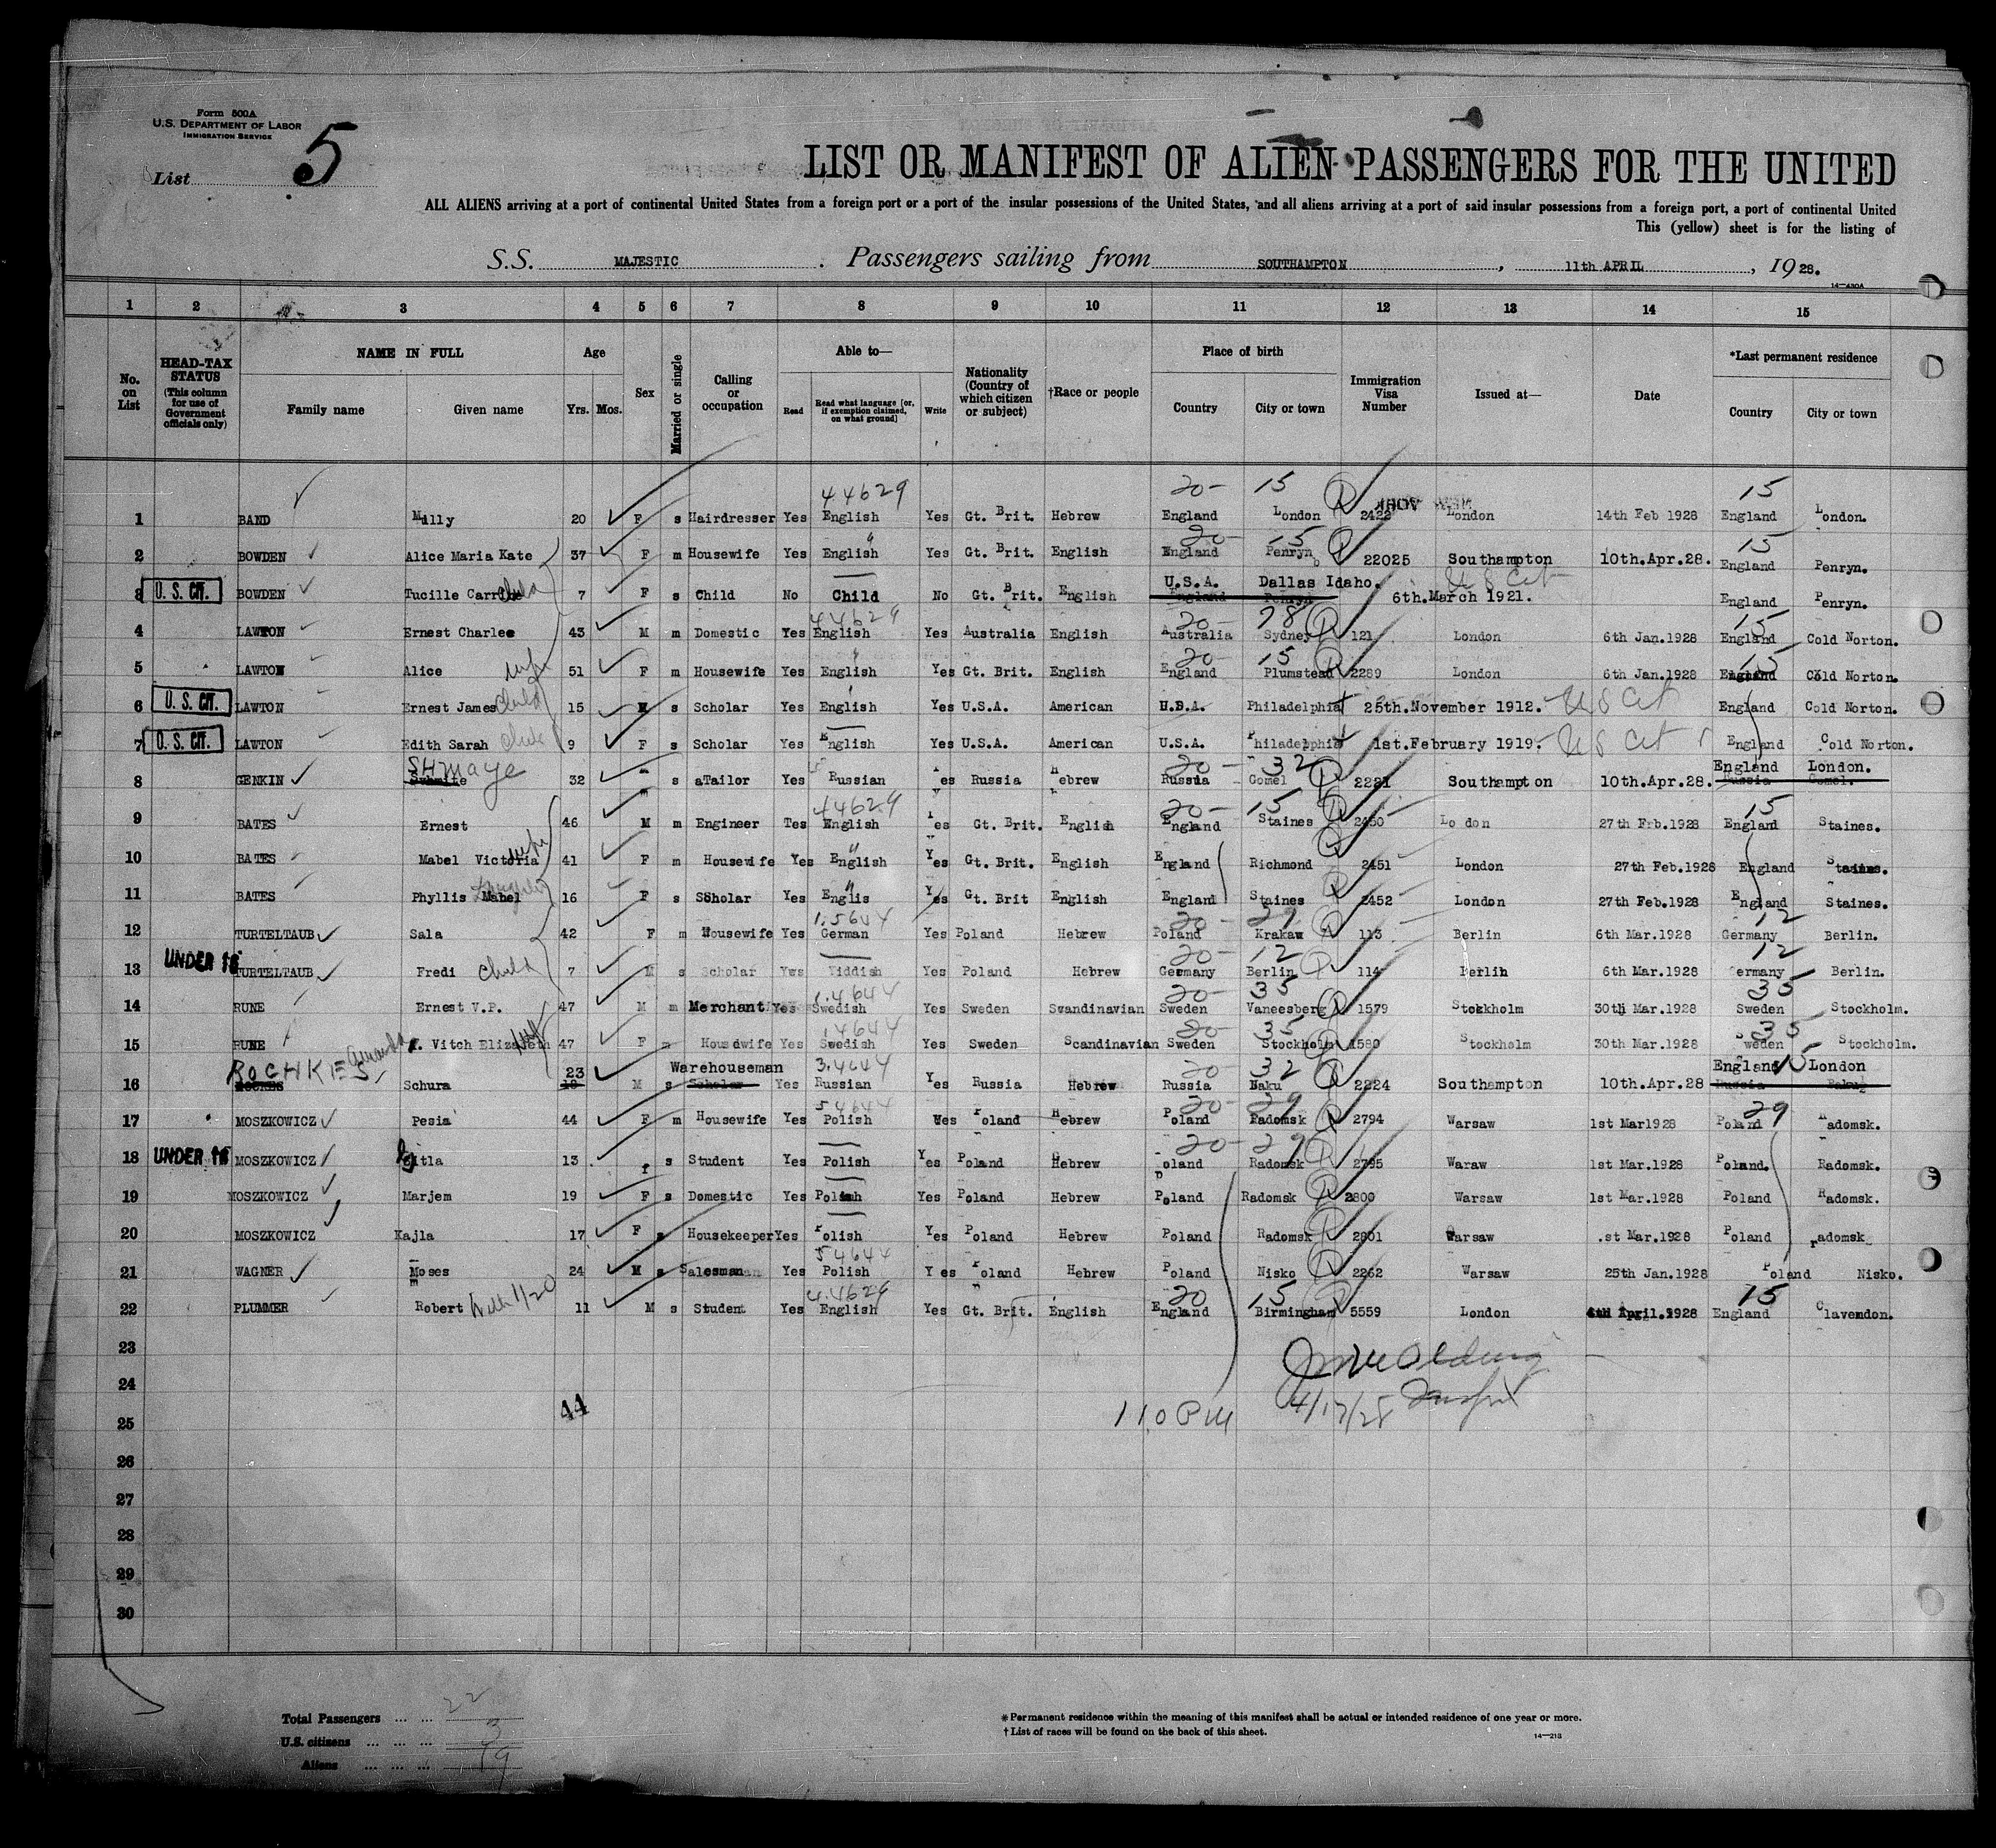 Form 500A
U.S. DEPARTMENT OF LABOR
IMMIGRATION SERVICE
List 5
LIST OR MANIFEST OF ALIEN PASSENGERS FOR THE UNITED
ALL ALIENS arriving at a port of continental United States from a foreign port or a port of the insular possessions of the United States, and all aliens arriving at a port of said insular possessions from a foreign port, a port of continental United
This (yellow) sheet is for the listing of
S.S. MAJESTIC. Passengers sailing from SOUTHAMPTON, 11th APRIL, 1928.
14—430A
1 2 3 4 5 6 7 8 9 10 11 12 13 14 15
No. on List
HEAD-TAX STATUS (This column for use of Government officials only)
NAME IN FULL Family name Given name
Age Yrs. Mos.
Sex
Married or single
Calling or occupation
Able to— Read Read what language [or, if exemption claimed, on what ground] Write
Nationality (Country of which citizen or subject)
†Race or people
Place of birth Country City or town
Immigration Visa Number
Issued at—
Date
*Last permanent residence Country City or town
44629 20- 15 15
1 BAND Milly 20 F s Hairdresser Yes English Yes Gt. Brit. Hebrew England London 2422 London 14th Feb 1928 England London.
20- 15 15
2 BOWDEN Alice Maria Kate 37 F m Housewife Yes English Yes Gt. Brit. English England Penryn 22025 Southampton 10th.Apr.28. England Penryn.
U.S.A. Dallas Idaho. U S Cit
3 U. S. CIT. BOWDEN Tucille child 7 F s Child No Child No Gt. Brit. English England Penryn 6th.March 1921. England Penryn.
44629 20- 78 15
4 LAWTON Ernest Charlee 43 M m Domestic Yes English Yes Australia English Australia Sydney 121 London 6th Jan.1928 England Cold Norton.
20- 15 15
5 LAWTON Alice wife 51 F m Housewife Yes English Yes Gt. Brit. English England Plumstead 2289 London 6th Jan.1928 England Cold Norton.
6 U. S. CIT. LAWTON Ernest James child 15 M s Scholar Yes English Yes U.S.A. American U.S.A. Philadelphia 25th.November 1912. U S Cit England Cold Norton.
7 U. S. CIT. LAWTON Edith Sarah child 9 F s Scholar Yes English Yes U.S.A. American U.S.A. Philadelphia 1st.February 1919. U S Cit England Cold Norton.
SHmaye 20- 32 England London.
8 GENKIN 32 s aTailor Yes Russian es Russia Hebrew Russia Gomel 2221 Southampton 10th.Apr.28. Russia Gomel.
44629 20- 15 15
9 BATES Ernest 46 M m Engineer Tes English Yes Gt. Brit. English England Staines 2450 Lo don 27th Frb.1928 England Staines.
10 BATES Mabel Victoria wife 41 F m Housewife Yes English Yes Gt. Brit. English England Richmond 2451 London 27th Feb.1928 England Staines.
11 BATES Phyllis Mabel daughter 16 F s Scholar Yes Englis Yes Gt. Brit English England Staines 2452 London 27th Feb.1928 England Staines.
20- 29 12
12 TURTELTAUB Sala 42 F m Housewife Yes German Yes Poland Hebrew Poland Krakau 113 Berlin 6th Mar.1928 Germany Berlin.
20- 12 12
13 UNDER 16 TURTELTAUB Fredi child 7 M s Scholar Yws Yiddish Yes Poland Hebrew Germany Berlin 114 Berlin 6th Mar.1928 Germany Berlin.
1.4644 20- 35 35
14 RUNE Ernest V.P. 47 M m Merchant Yes Swedish Yes Sweden Swandinavian Sweden Vaneesberg 1579 Stockholm 30th Mar.1928 Sweden Stockholm.
14644 20- 35 35
15 RUNE Amanda Vitch Elizabeth wife 47 F m Housdwife Yes Swedish Yes Sweden Scandinavian Sweden Stockholm 1580 Stockholm 30th Mar.1928 Sweden Stockholm.
ROCHKES 23 Warehouseman 3.4644 20- 32 England 15 London
16 Schura 18 M s Scholar Yes Russian Yes Russia Hebrew Russia Naku 2224 Southampton 10th.Apr.28 Russia
54644 20- 29 29
17 MOSZKOWICZ Pesia 44 F m Housewife Yes Polish Yes Poland Hebrew Poland Radomsk 2794 Warsaw 1st Mar1928 Poland Radomsk.
20- 29
18 UNDER 16 MOSZKOWICZ Gitla 13 f s Student Yes Polish Yes Poland Hebrew Poland Radomsk 2795 Waraw 1st Mar.1928 Poland. Radomsk.
19 MOSZKOWICZ Marjem 19 F s Domestic Yes Polish Yes Poland Hebrew Poland Radomsk 2800 Warsaw 1st Mar.1928 Poland Radomsk.
20 MOSZKOWICZ Kajla 17 F s Housekeeper Yes Polish Yes Poland Hebrew Poland Radomsk 2801 Warsaw .st Mar.1928 Poland radomsk
54644
21 WAGNER Moses 24 M s Salesman Yes Polish Yes Poland Hebrew Poland Nisko 2262 Warsaw 25th Jan.1928 Poland Nisko.
4.4629 20 15 15
22 PLUMMER Robert with 1/20 11 M s Student Yes English Yes Gt. Brit. English England Birmingham 5559 London 4th April.1928 England Clavendon.
23
24
44 110 PM 4/17/28
25
26
27
28
29
30
Total Passengers ... ... 22
U.S. citizens ... ... ... 3
Aliens ... ... ... 19
*Permanent residence within the meaning of this manifest shall be actual or intended residence of one year or more.
†List of races will be found on the back of this sheet.
14—213